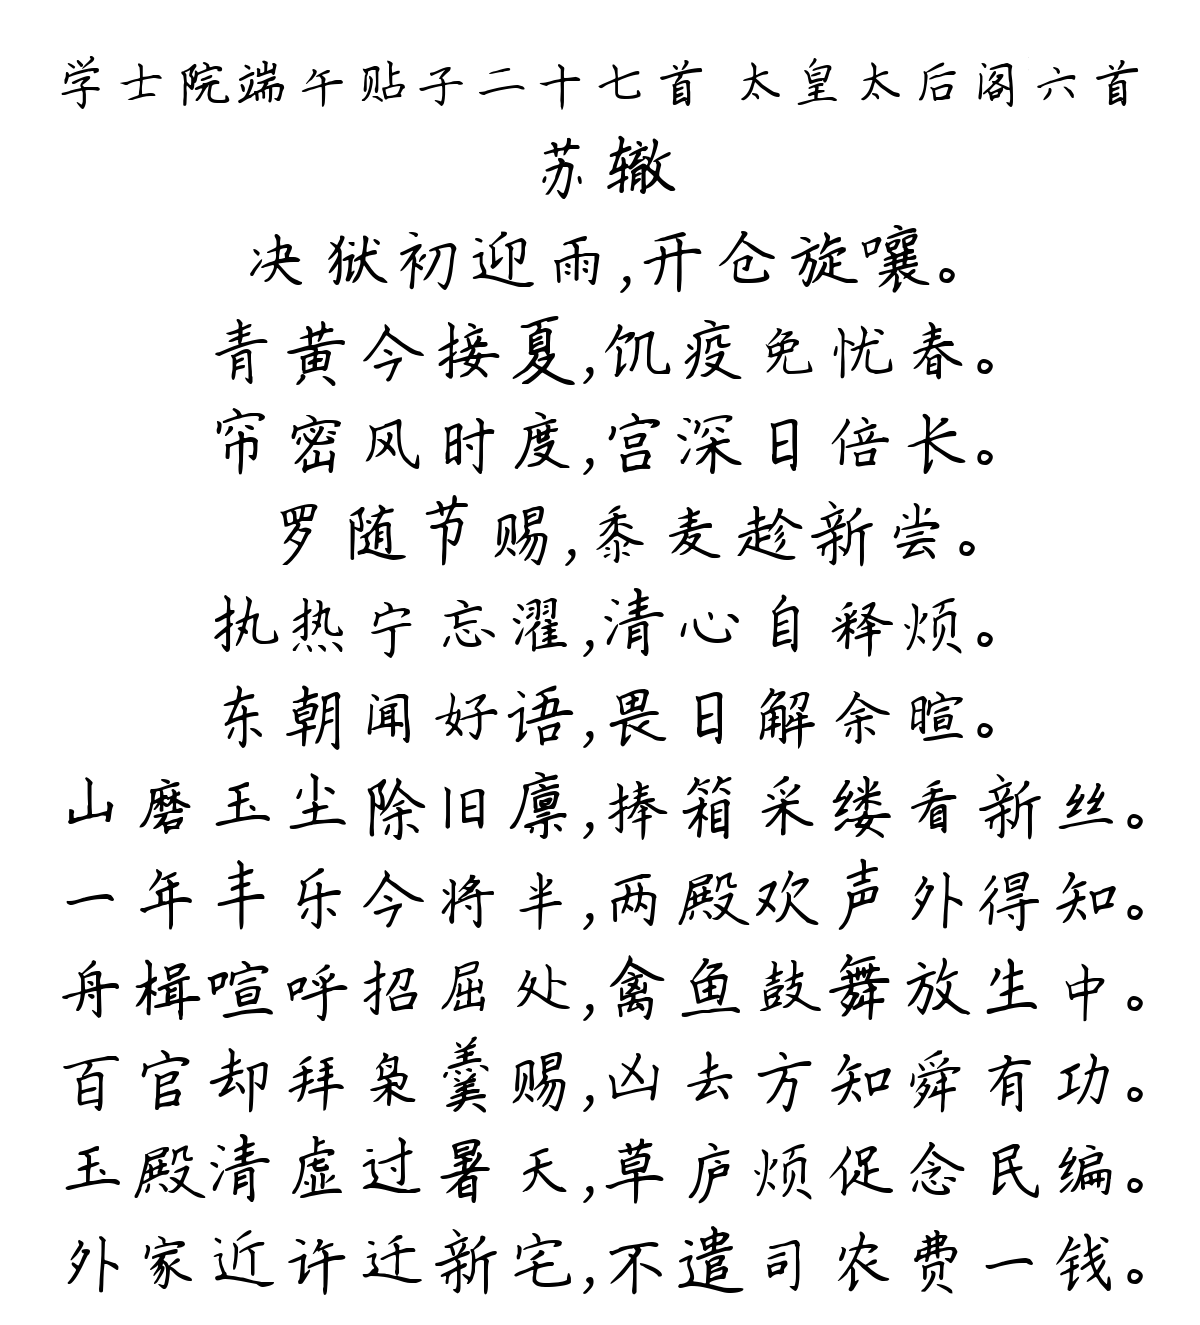 学士院端午贴子二十七首 太皇太后阁六首
苏辙
决狱初迎雨,开仓旋嚷。
青黄今接夏,饥疫免忧春。
帘密风时度,宫深日倍长。
罗随节赐,黍麦趁新尝。
执热宁忘濯,清心自释烦。
东朝闻好语,畏日解余暄。
山磨玉尘除旧廪,捧箱采缕看新丝。
一年丰乐今将半,两殿欢声外得知。
舟楫喧呼招屈处,禽鱼鼓舞放生中。
百官却拜枭羹赐,凶去方知舜有功。
玉殿清虚过暑天,草庐烦促念民编。
外家近许迁新宅,不遣司农费一钱。